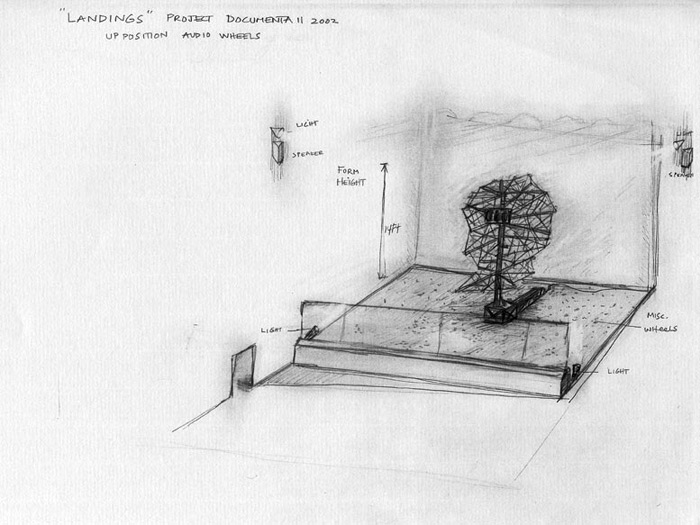 "LANDINGS" PROJECT DOCUMENTA 11 2002
UP POSITION AUDIO WHEELS
LIGHT
SPEAKER
LIGHT
SPEAKER
FORM
HEIGHT
14FT
LIGHT
MISC.
WHEELS
LIGHT